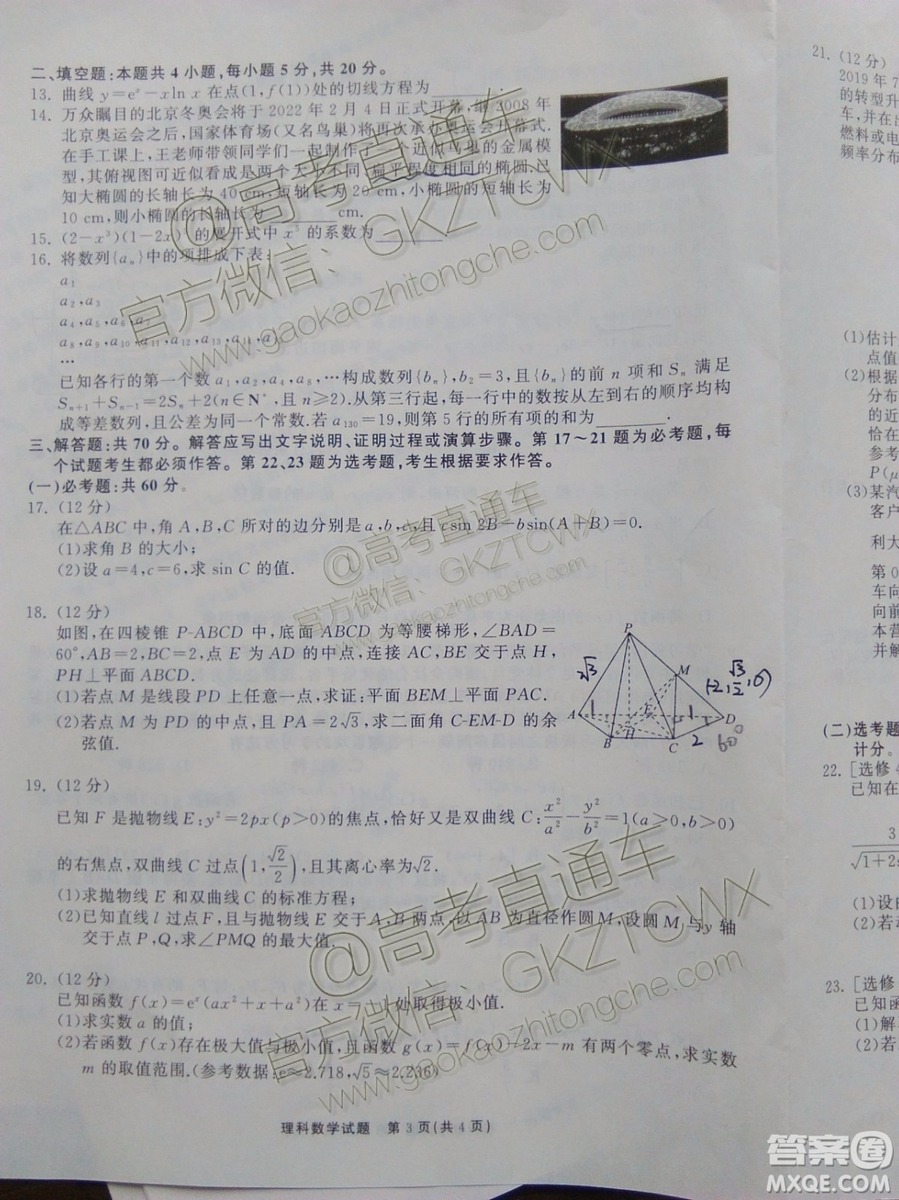 二、填空题:本题共4小题,每小题5分,共20分。
13. 曲线 y=eˣ-xln x 在点(1,f(1))处的切线方程为
14. 万众瞩目的北京冬奥会将于 2022 年 2 月 4 日正式开幕,继 2008 年
北京奥运会之后,国家体育场(又名鸟巢)将再次承办奥运会开幕式.
在手工课上,王老师带领同学们一起制作了一个近似鸟巢的金属模
型,其俯视图可近似看成是两个大小不同,扁平程度相同的椭圆.已
知大椭圆的长轴长为 40 cm,短轴长为 20 cm,小椭圆的短轴长为
10 cm,则小椭圆的长轴长为 cm.
15. (2-x³)(1-2x 的展开式中 x⁵ 的系数为
16. 将数列{aₙ}中的项排成下表:
a₁
a₂,a₃
a₄,a₅,a₆,a₇
a₈,a₉,a₁₀,a₁₁,a₁₂,a₁₃,a₁₄,a
…
已知各行的第一个数 a₁,a₂,a₄,a₈,…构成数列{bₙ},b₂=3,且{bₙ}的前 n 项和 Sₙ 满足
Sₙ₊₁+Sₙ₋₁=2Sₙ+2(n∈N*,且 n≥2).从第三行起,每一行中的数按从左到右的顺序均构
成等差数列,且公差为同一个常数.若 a₁₃₀=19,则第 5 行的所有项的和为
三、解答题:共 70 分。解答应写出文字说明、证明过程或演算步骤。第 17~21 题为必考题,每
个试题考生都必须作答。第 22、23 题为选考题,考生根据要求作答。
(一)必考题:共 60 分。
17. (12 分)
在△ABC 中,角 A,B,C 所对的边分别是 a,b,c,且 csin 2B-bsin(A+B)=0.
(1)求角 B 的大小;
(2)设 a=4,c=6,求 sin C 的值.
18. (12 分)
如图,在四棱锥 P-ABCD 中,底面 ABCD 为等腰梯形,∠BAD=
60°,AB=2,BC=2,点 E 为 AD 的中点,连接 AC,BE 交于点 H,
PH⊥平面 ABCD.
(1)若点 M 是线段 PD 上任意一点,求证:平面 BEM⊥平面 PAC.
(2)若点 M 为 PD 的中点,且 PA=2√3,求二面角 C-EM-D 的余
弦值.
P
M
A
B
H
E
C
D
1
1
2
60°
19. (12 分)
已知 F 是抛物线 E:y²=2px(p>0)的焦点,恰好又是双曲线 C:x²/a²-y²/b²=1(a>0,b>0)
的右焦点,双曲线 C 过点(1,√2/2),且其离心率为√2.
(1)求抛物线 E 和双曲线 C 的标准方程;
(2)已知直线 l 过点 F,且与抛物线 E 交于 A,B 两点,以 AB 为直径作圆 M,设圆 M 与 y 轴
交于点 P,Q,求∠PMQ 的最大值.
20. (12 分)
已知函数 f(x)=eˣ(ax²+x+a²)在 x= 处取得极小值.
(1)求实数 a 的值;
(2)若函数 f(x)存在极大值与极小值,且函数 g(x)=f(x)-2x-m 有两个零点,求实数
m 的取值范围.(参考数据:e≈2.718,√5≈2.236)
理科数学试题 第 3 页(共 4 页)
21. (12 分)
2019 年 7
的转型升
车,并在出
燃料或电
频率分布
(1)估计
点值
(2)根据
分布
的近
恰在
考驾
P(μ
(3)某汽
客户
利大
第 0
车向
向前
本营
并解
(二)选考题
计分。
22. [选修 4
已知在
3
√1+2s
(1)设
(2)若
23. [选修
已知函
(1)解
(2)若
@高考直通车
官方微信: GKZTCWX
www.gaokaozhitongche.com
@高考直通车
官方微信: GKZTCWX
www.gaokaozhitongche.com
@高考直通车
官方微信: GKZTCWX
www.gaokaozhitongche.com
答案圈
MXQE.COM